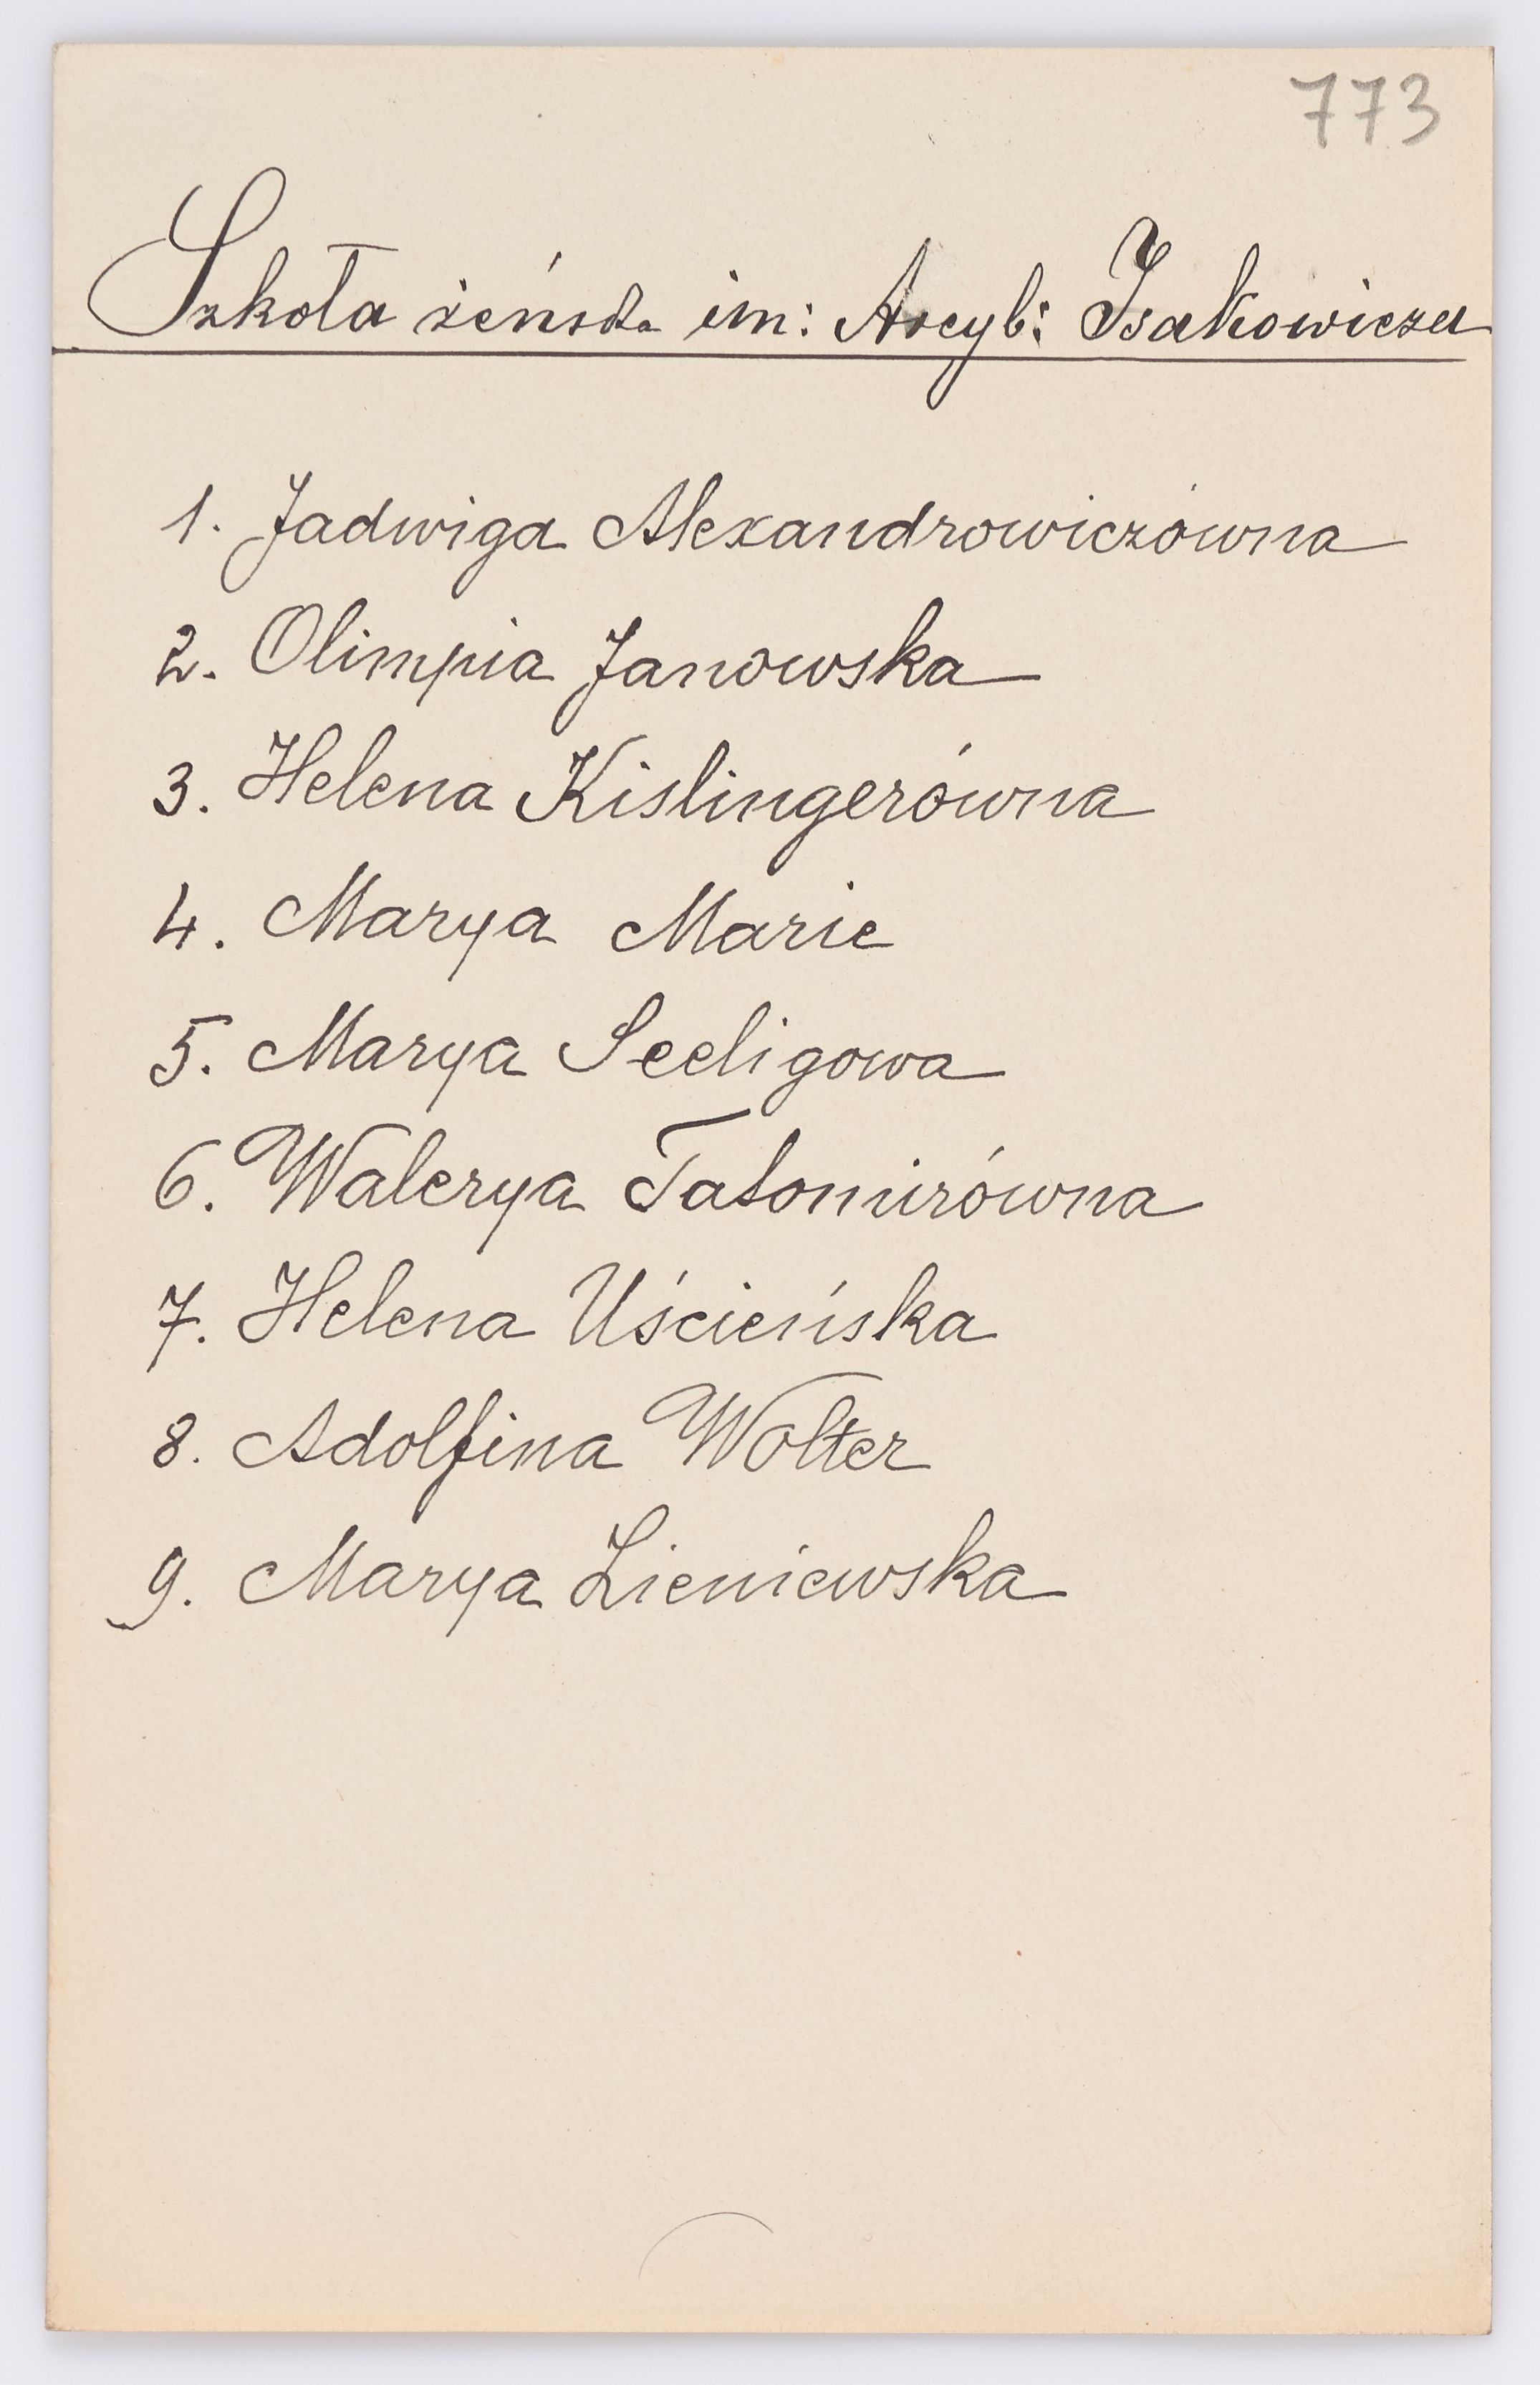 773
Szkoła żeńska im: Arcyb: Isakowicza
1. Jadwiga Alexandrowiczówna
2. Olimpia Janowska
3. Helena Kislingerówna
4. Marya Marie
5. Marya Seeligowa
6. Walerya Tatomirówna
7. Helena Uścieńska
8. Adolfina Wolter
9. Marya Lieniewska